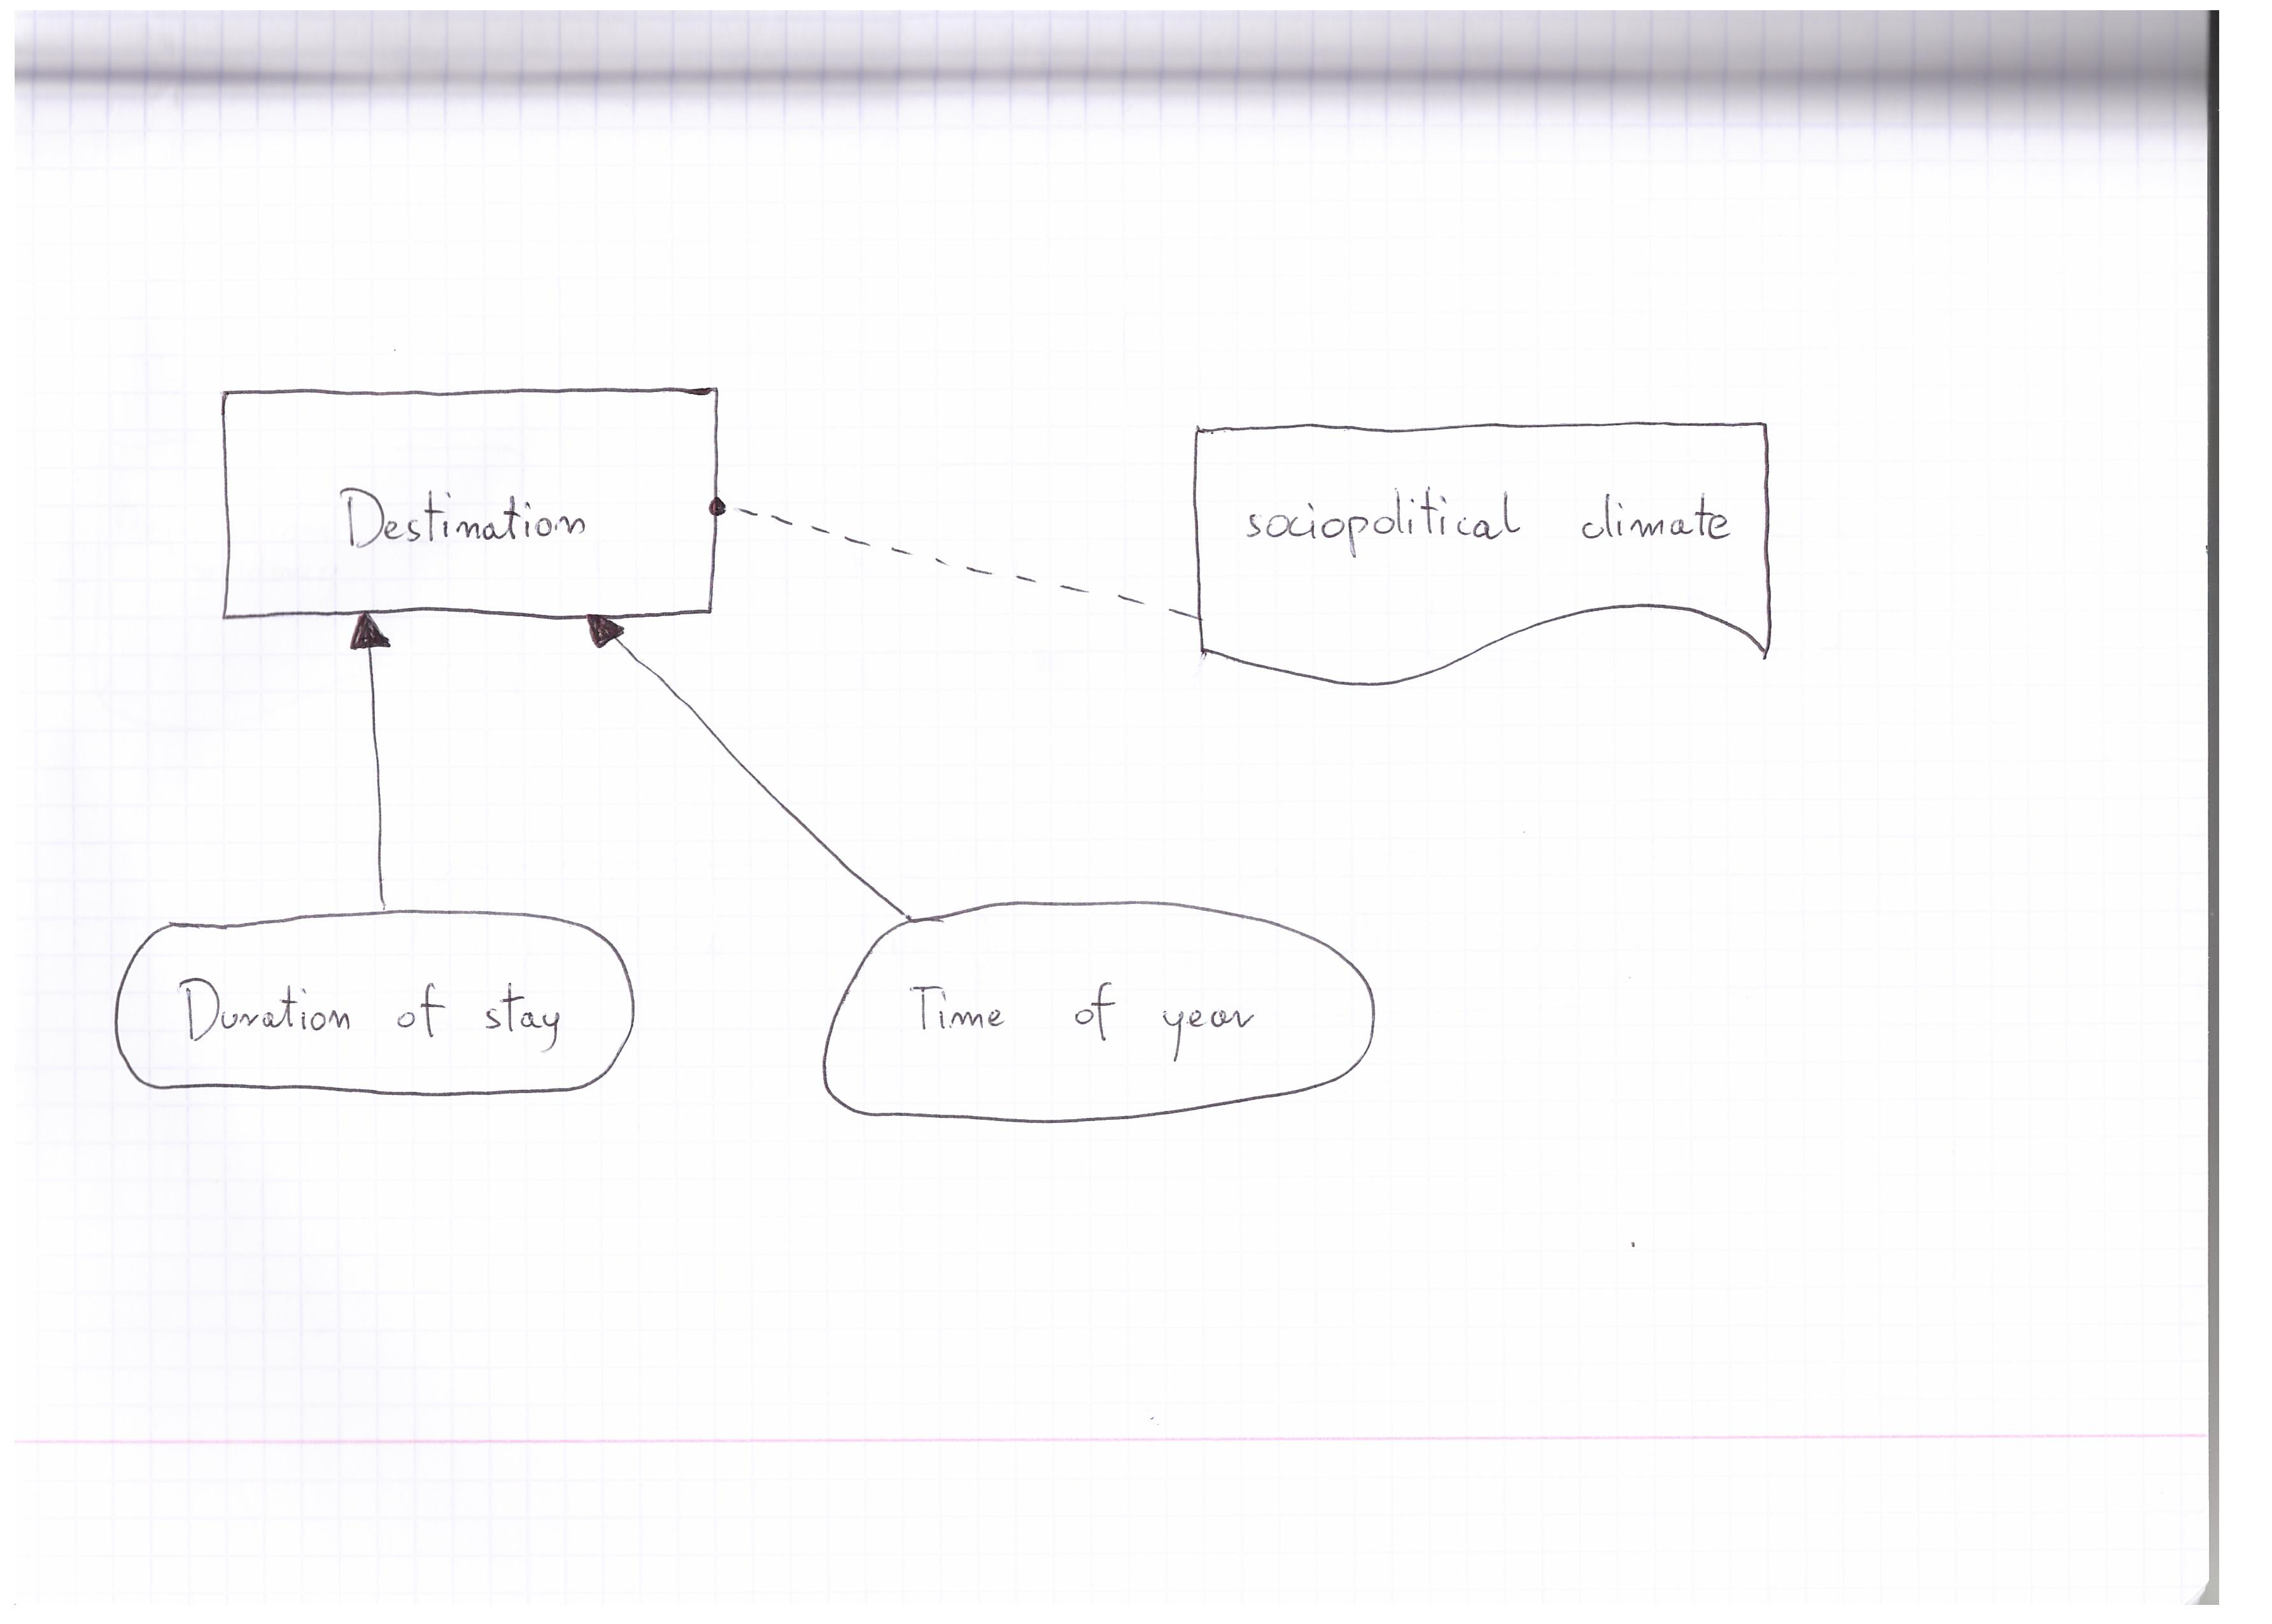 Destination
sociopolitical climate
Duration of stay
Time of year